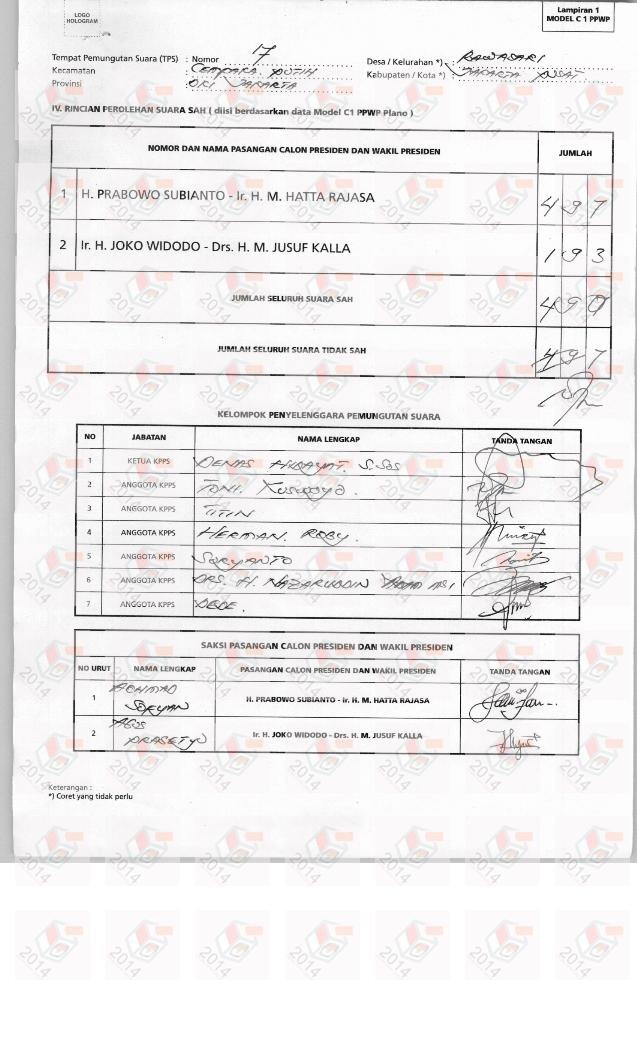 LOGO
HOLOGRAM
Lampiran 1
MODEL C 1 PPWP
Tempat Pemungutan Suara (TPS) : Nomor 17 Desa / Kelurahan *) : RAWASARI
Kecamatan : CEMPAKA PUTIH Kabupaten / Kota *) : JAKARTA PUSAT
Provinsi : DKI JAKARTA
IV. RINCIAN PEROLEHAN SUARA SAH ( diisi berdasarkan data Model C1 PPWP Plano )
NOMOR DAN NAMA PASANGAN CALON PRESIDEN DAN WAKIL PRESIDEN JUMLAH
1 H. PRABOWO SUBIANTO - Ir. H. M. HATTA RAJASA 4 9 7
2 Ir. H. JOKO WIDODO - Drs. H. M. JUSUF KALLA 1 9 3
JUMLAH SELURUH SUARA SAH 4 9 0
JUMLAH SELURUH SUARA TIDAK SAH 9 7
KELOMPOK PENYELENGGARA PEMUNGUTAN SUARA
NO JABATAN NAMA LENGKAP TANDA TANGAN
1 KETUA KPPS DENAS HIDAYAT. S.Sos
2 ANGGOTA KPPS TONI. KUSWOYO.
3 ANGGOTA KPPS TITIN
4 ANGGOTA KPPS HERMAN. ROBY.
5 ANGGOTA KPPS SURYANTO
6 ANGGOTA KPPS DRS. H. NAZARUDDIN
7 ANGGOTA KPPS DEDE.
SAKSI PASANGAN CALON PRESIDEN DAN WAKIL PRESIDEN
NO URUT NAMA LENGKAP PASANGAN CALON PRESIDEN DAN WAKIL PRESIDEN TANDA TANGAN
1 ACHMAD SOFYAN H. PRABOWO SUBIANTO - Ir. H. M. HATTA RAJASA
2 AGUS PRASETYO Ir. H. JOKO WIDODO - Drs. H. M. JUSUF KALLA
Keterangan :
*) Coret yang tidak perlu
2014